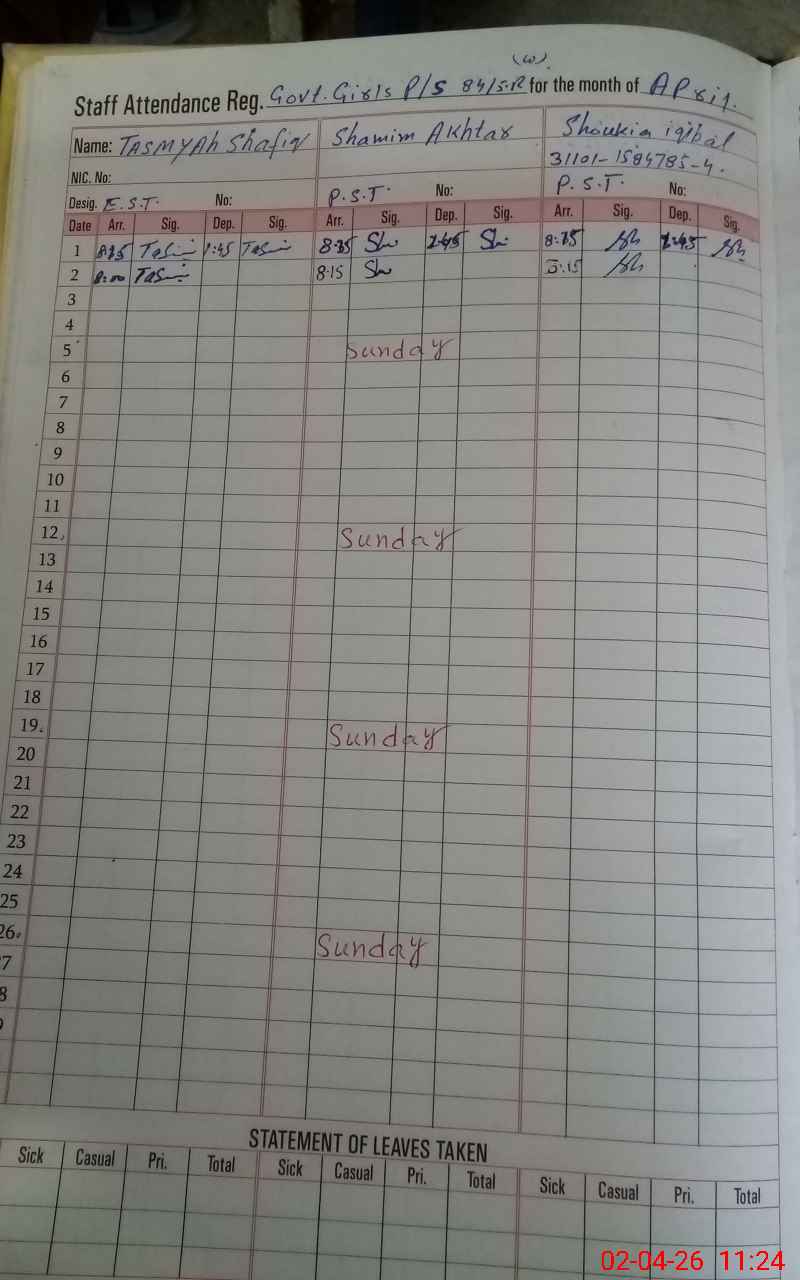 (W).
Staff Attendance Reg. Govt. Girls P/S 84/5.R for the month of April.
Name: TASMYAh Shafiq Shamim Akhtar Shoukia iqbal
NIC. No: 31101-1584785-4.
Desig. E.S.T. No: P.S.T. No: P.S.T. No:
Date Arr. Sig. Dep. Sig. Arr. Sig. Dep. Sig. Arr. Sig. Dep. Sig.
1
2 8:00 8:15
3
4
5 Sunday
6
7
8
9
10
11
12 Sunday
13
14
15
16
17
18
19. Sunday
20
21
22
23
24
25
26. Sunday
7
8
STATEMENT OF LEAVES TAKEN
Sick Casual Pri. Total Sick Casual Pri. Total Sick Casual Pri. Total
02-04-26 11:24